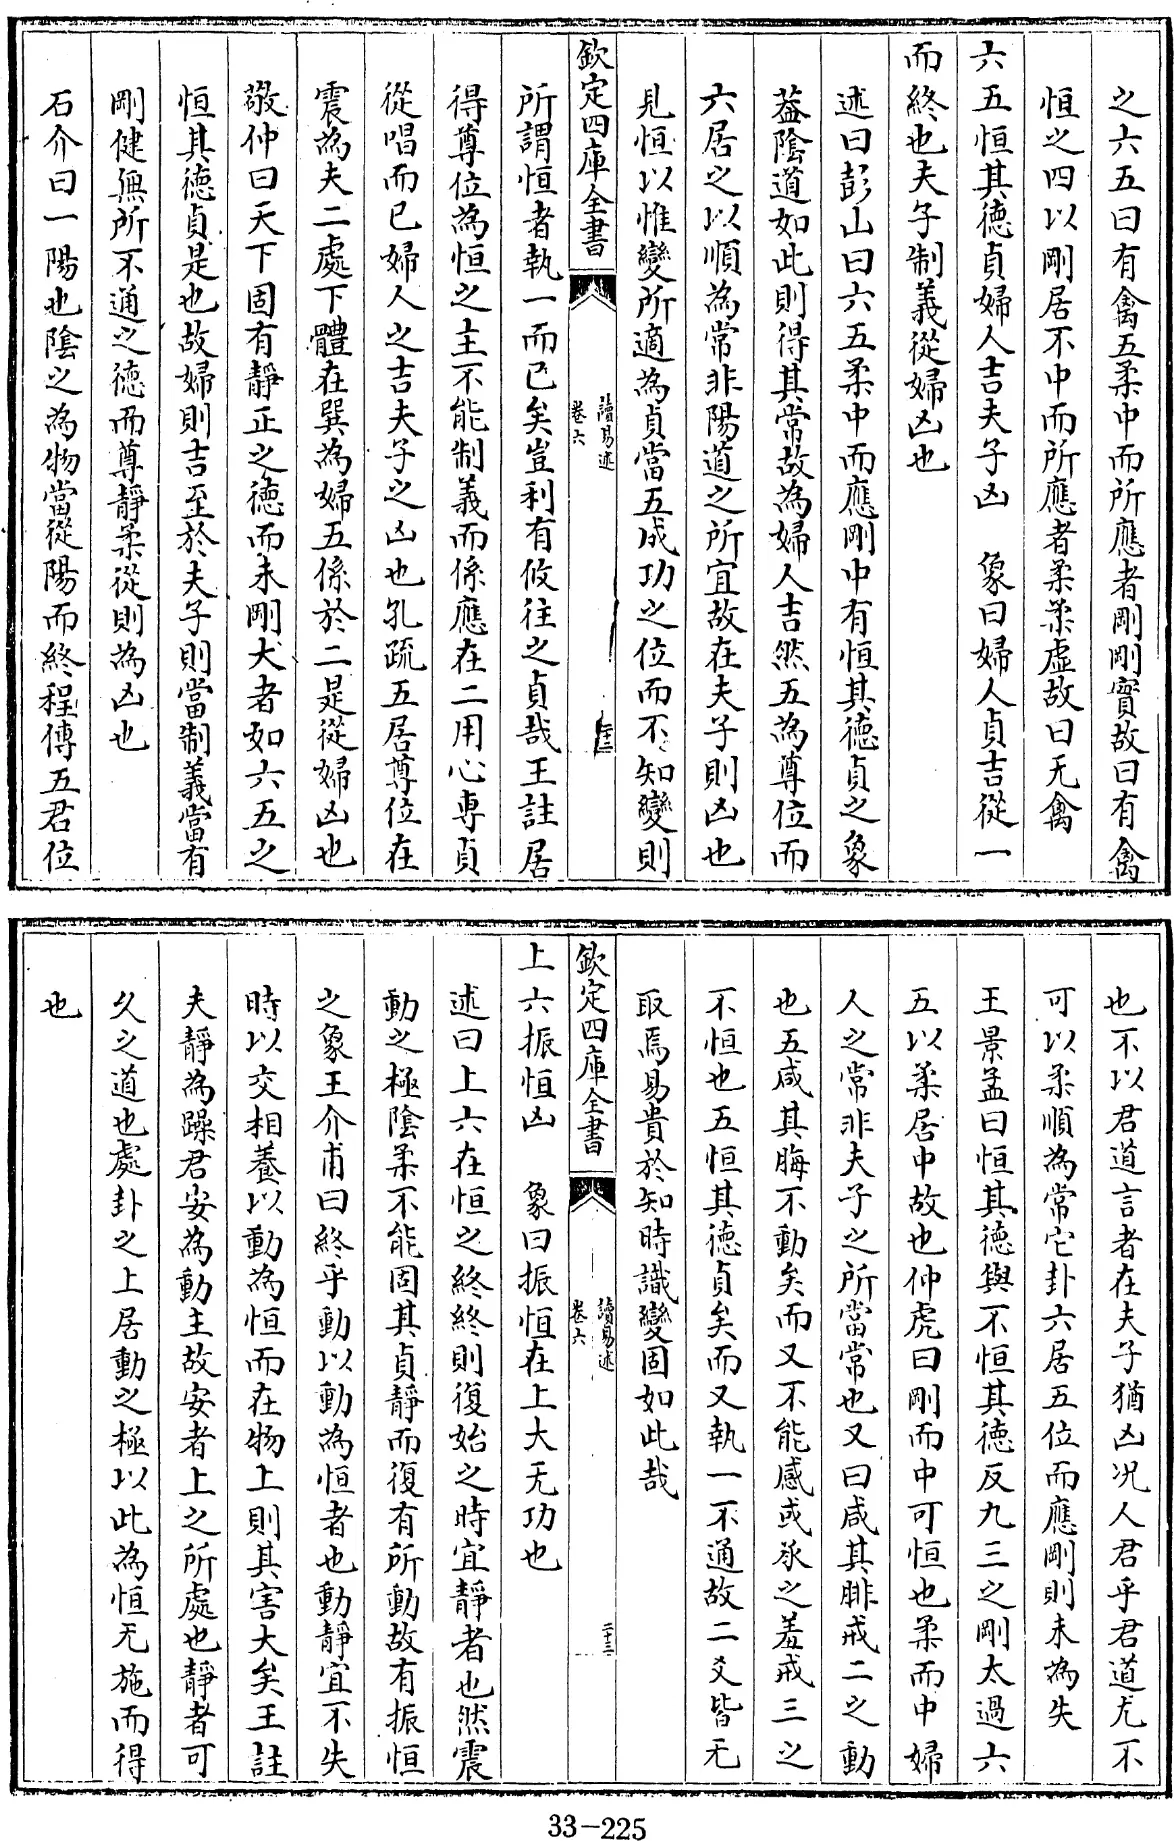 之六五曰有禽五柔中而所應者剛剛實故曰有禽
恒之四以剛居不中而所應者柔柔虛故曰无禽
六五恒其德貞婦人吉夫子凶　象曰婦人貞吉從一
而終也夫子制義從婦凶也
述曰彭山曰六五柔中而應剛中有恒其德貞之象
葢陰道如此則得其常故為婦人吉然五為尊位而
六居之以順為常非陽道之所宜故在夫子則凶也
見恒以惟變所適為貞當五成功之位而不知變則
欽定四庫全書
讀易述
卷六
所謂恒者執一而已矣豈利有攸往之貞哉王註居
得尊位為恒之主不能制義而係應在二用心專貞
從唱而已婦人之吉夫子之凶也孔疏五居尊位在
震為夫二處下體在巽為婦五係於二是從婦凶也
敬仲曰天下固有靜正之德而未剛大者如六五之
恒其德貞是也故婦則吉至於夫子則當制義當有
剛健無所不通之德而尊靜柔從則為凶也
石介曰一陽也陰之為物當從陽而終程傳五君位
也不以君道言者在夫子猶凶况人君乎君道尤不
可以柔順為常它卦六居五位而應剛則未為失
王景孟曰恒其德與不恒其德反九三之剛太過六
五以柔居中故也仲虎曰剛而中可恒也柔而中婦
人之常非夫子之所當常也又曰咸其腓戒二之動
也五咸其脢不動矣而又不能感或承之羞戒三之
不恒也五恒其德貞矣而又執一不通故二爻皆无
取焉易貴於知時識變固如此哉
欽定四庫全書
讀易述
卷六
二十三
上六振恒凶　象曰振恒在上大无功也
述曰上六在恒之終終則復始之時宜靜者也然震
動之極陰柔不能固其貞靜而復有所動故有振恒
之象王介甫曰終乎動以動為恒者也動靜宜不失
時以交相養以動為恒而在物上則其害大矣王註
夫靜為躁君安為動主故安者上之所處也靜者可
久之道也處卦之上居動之極以此為恒无施而得
也
33-225